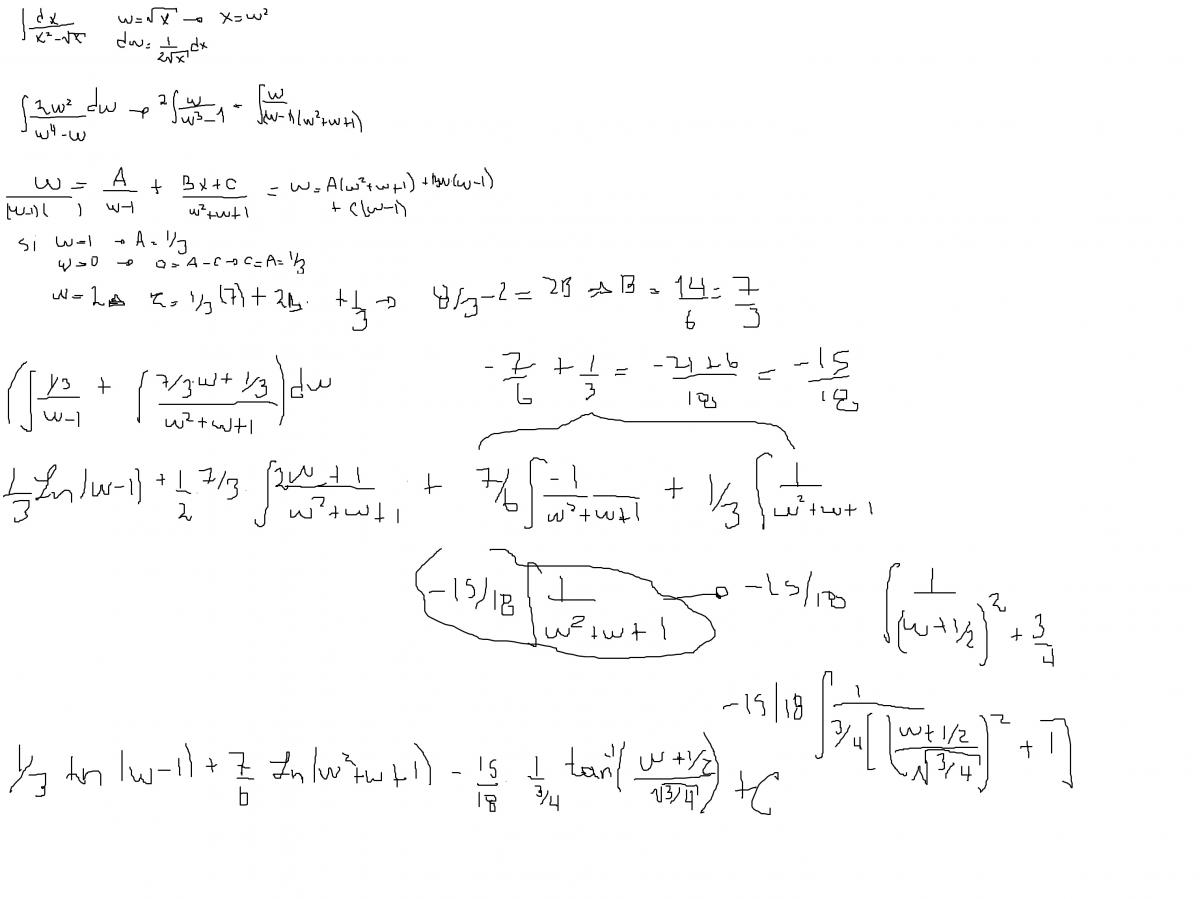 ∫ dx/(x²-√x)   w=√x → x=w²
dw= 1/(2√x) dx
∫ 2w²/(w⁴-w) dw → 2∫ w/(w³-1) = ∫ w/((w-1)(w²+w+1))
w/((w-1)( )) = A/(w-1) + (Bx+C)/(w²+w+1) = w=A(w²+w+1)+Bw(w-1)
+ C(w-1)
si w=1 → A=1/3
w=0 → 0=A-C→C=A=1/3
w=2→ 2=1/3(7)+2B. +1/3 → 8/3-2=2B → B=14/6=7/3
(∫ (1/3)/(w-1) + ∫ (7/3·w+1/3)/(w²+w+1)) dw   -7/6 + 1/3 = (-21+6)/18 = -15/18
1/3 Ln|w-1| + 1/2·7/3·∫ (2w+1)/(w²+w+1) + 7/6 ∫ -1/(w²+w+1) + 1/3 ∫ 1/(w²+w+1)
-15/18 ∫ 1/(w²+w+1) → -15/18 ∫ 1/((w+1/2)²+3/4)
-15/18 ∫ 1/(3/4[((w+1/2)/√(3/4))²+1])
1/3 Ln|w-1| + 7/6 Ln|w²+w+1| - 15/18 · 1/(3/4) tan⁻¹((w+1/2)/√(3/4)) + C